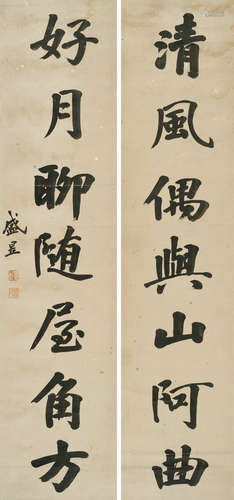 清風偶與山阿曲
好月聊随屋角方
盛昱